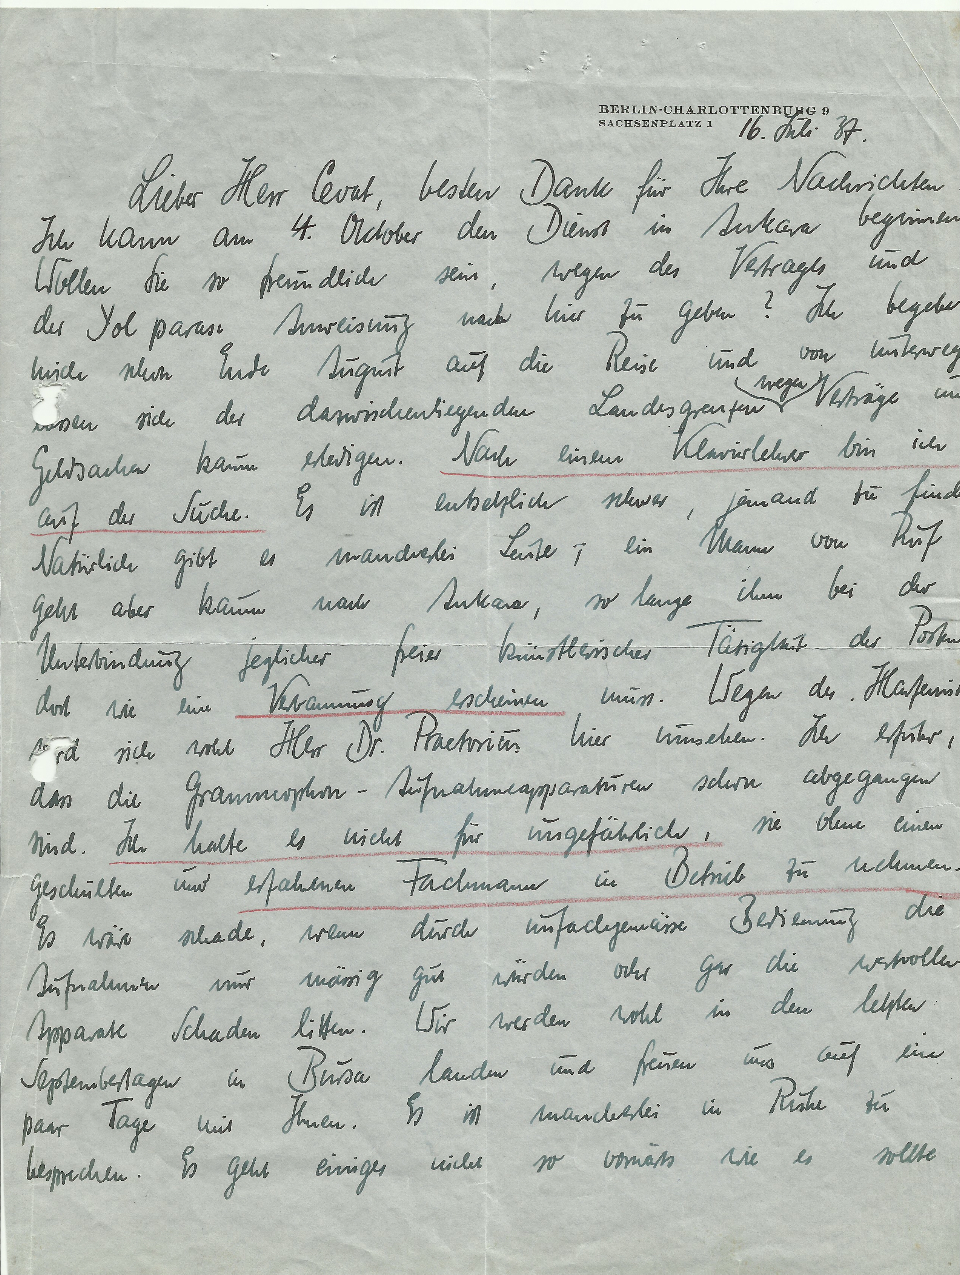 BERLIN-CHARLOTTENBURG 9
SACHSENPLATZ 1
16. Juli 37.
Lieber Herr Cevat, besten Dank für Ihre Nachrichten.
Ich kann am 4. Oktober den Dienst in Ankara beginnen
Wollen Sie so freundlich sein, wegen des Vertrages und
der Yol parası Anweisung nach hier zu geben? Ich begebe
mich schon Ende August auf die Reise und von unterweg
wegen
lassen sich der dazwischenliegenden Landesgrenzen Verträge un
Geldsachen kaum erledigen. Nach einem Klavierlehrer bin ich
auf der Suche. Es ist entsetzlich schwer, jemand zu finde
Natürlich gibt es mancherlei Leute; ein Mann von Ruf
geht aber kaum nach Ankara, so lange ihm bei der
Unterbindung jeglicher freier künstlerischer Tätigkeit der Posten
dort wie eine Verbannung erscheinen muss. Wegen des Harfenist
wird sich wohl Herr Dr. Praetorius hier umsehen. Ich erfuhr,
dass die Grammophon-Aufnahmeapparaturen schon abgegangen
sind. Ich halte es nicht für ungefährlich, sie ohne einen
geschulten und erfahrenen Fachmann in Betrieb zu nehmen.
Es wäre schade, wenn durch unfachgemässe Bedienung die
Aufnahmen nur mässig gut würden oder gar die wertvollen
Apparate Schaden litten. Wir werden wohl in den letzten
Septembertagen in Bursa landen und freuen uns auf ein
paar Tage mit Ihnen. Es ist mancherlei in Ruhe zu
besprechen. Es geht einiges nicht so vorwärts wie es sollte